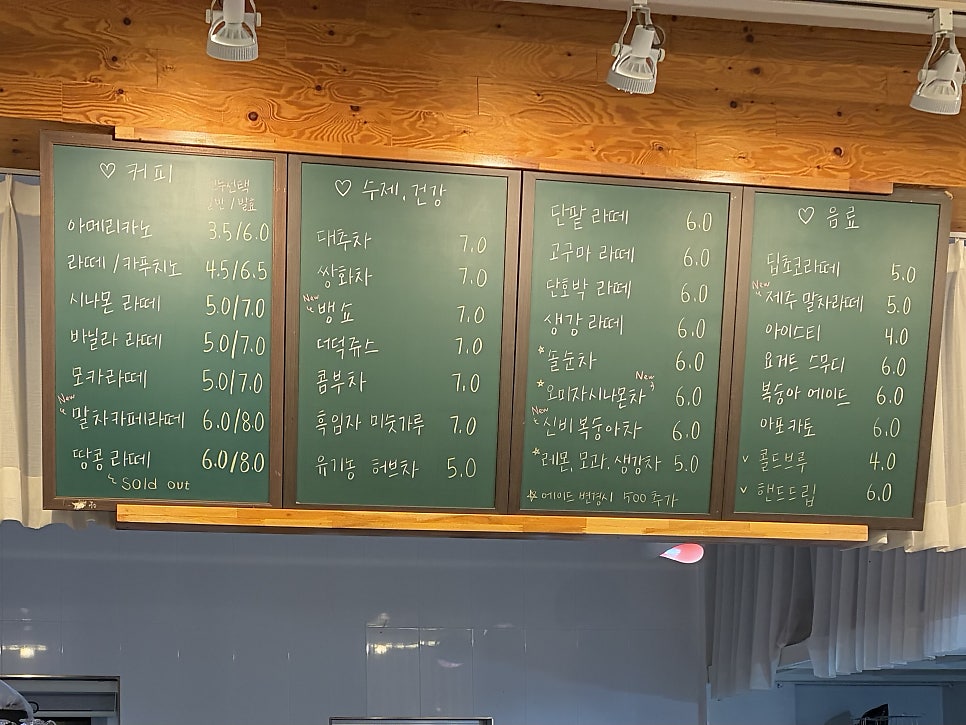 ♡ 커피
원두선택
일반 / 발효
아메리카노 3.5/6.0
라떼 / 카푸치노 4.5/6.5
시나몬 라떼 5.0/7.0
바닐라 라떼 5.0/7.0
모카라떼 5.0/7.0
New
말차카페라떼 6.0/8.0
땅콩 라떼 6.0/8.0
Sold out
♡ 수제, 건강
대추차 7.0
쌍화차 7.0
New
뱅쇼 7.0
더덕쥬스 7.0
콤부차 7.0
흑임자 미숫가루 7.0
유기농 허브차 5.0
단팥 라떼 6.0
고구마 라떼 6.0
단호박 라떼 6.0
생강 라떼 6.0
☆솔순차 6.0
New
☆오미자시나몬차 6.0
New
신비복숭아차 6.0
☆레몬, 모과, 생강차 5.0
☆에이드 변경시 500 추가
♡ 음료
딥초코라떼 5.0
New
제주 말차라떼 5.0
아이스티 4.0
요거트 스무디 6.0
복숭아 에이드 6.0
아포카토 6.0
v 콜드브루 4.0
v 핸드드립 6.0